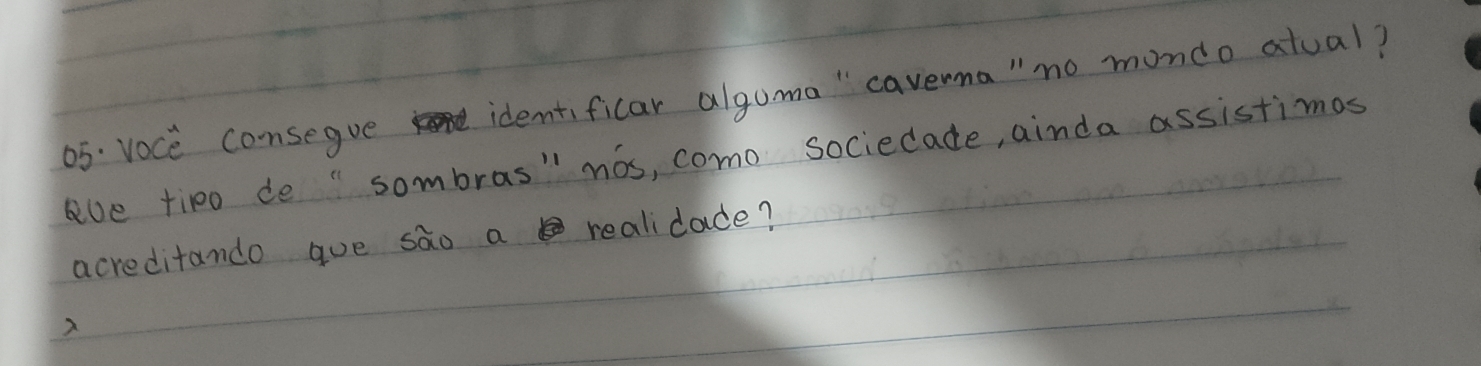 05. Você consegue identificar alguma "caverna" no mundo atual?
Que tipo de "sombras" nós, como sociedade, ainda assistimos
acreditando que são a realidade?